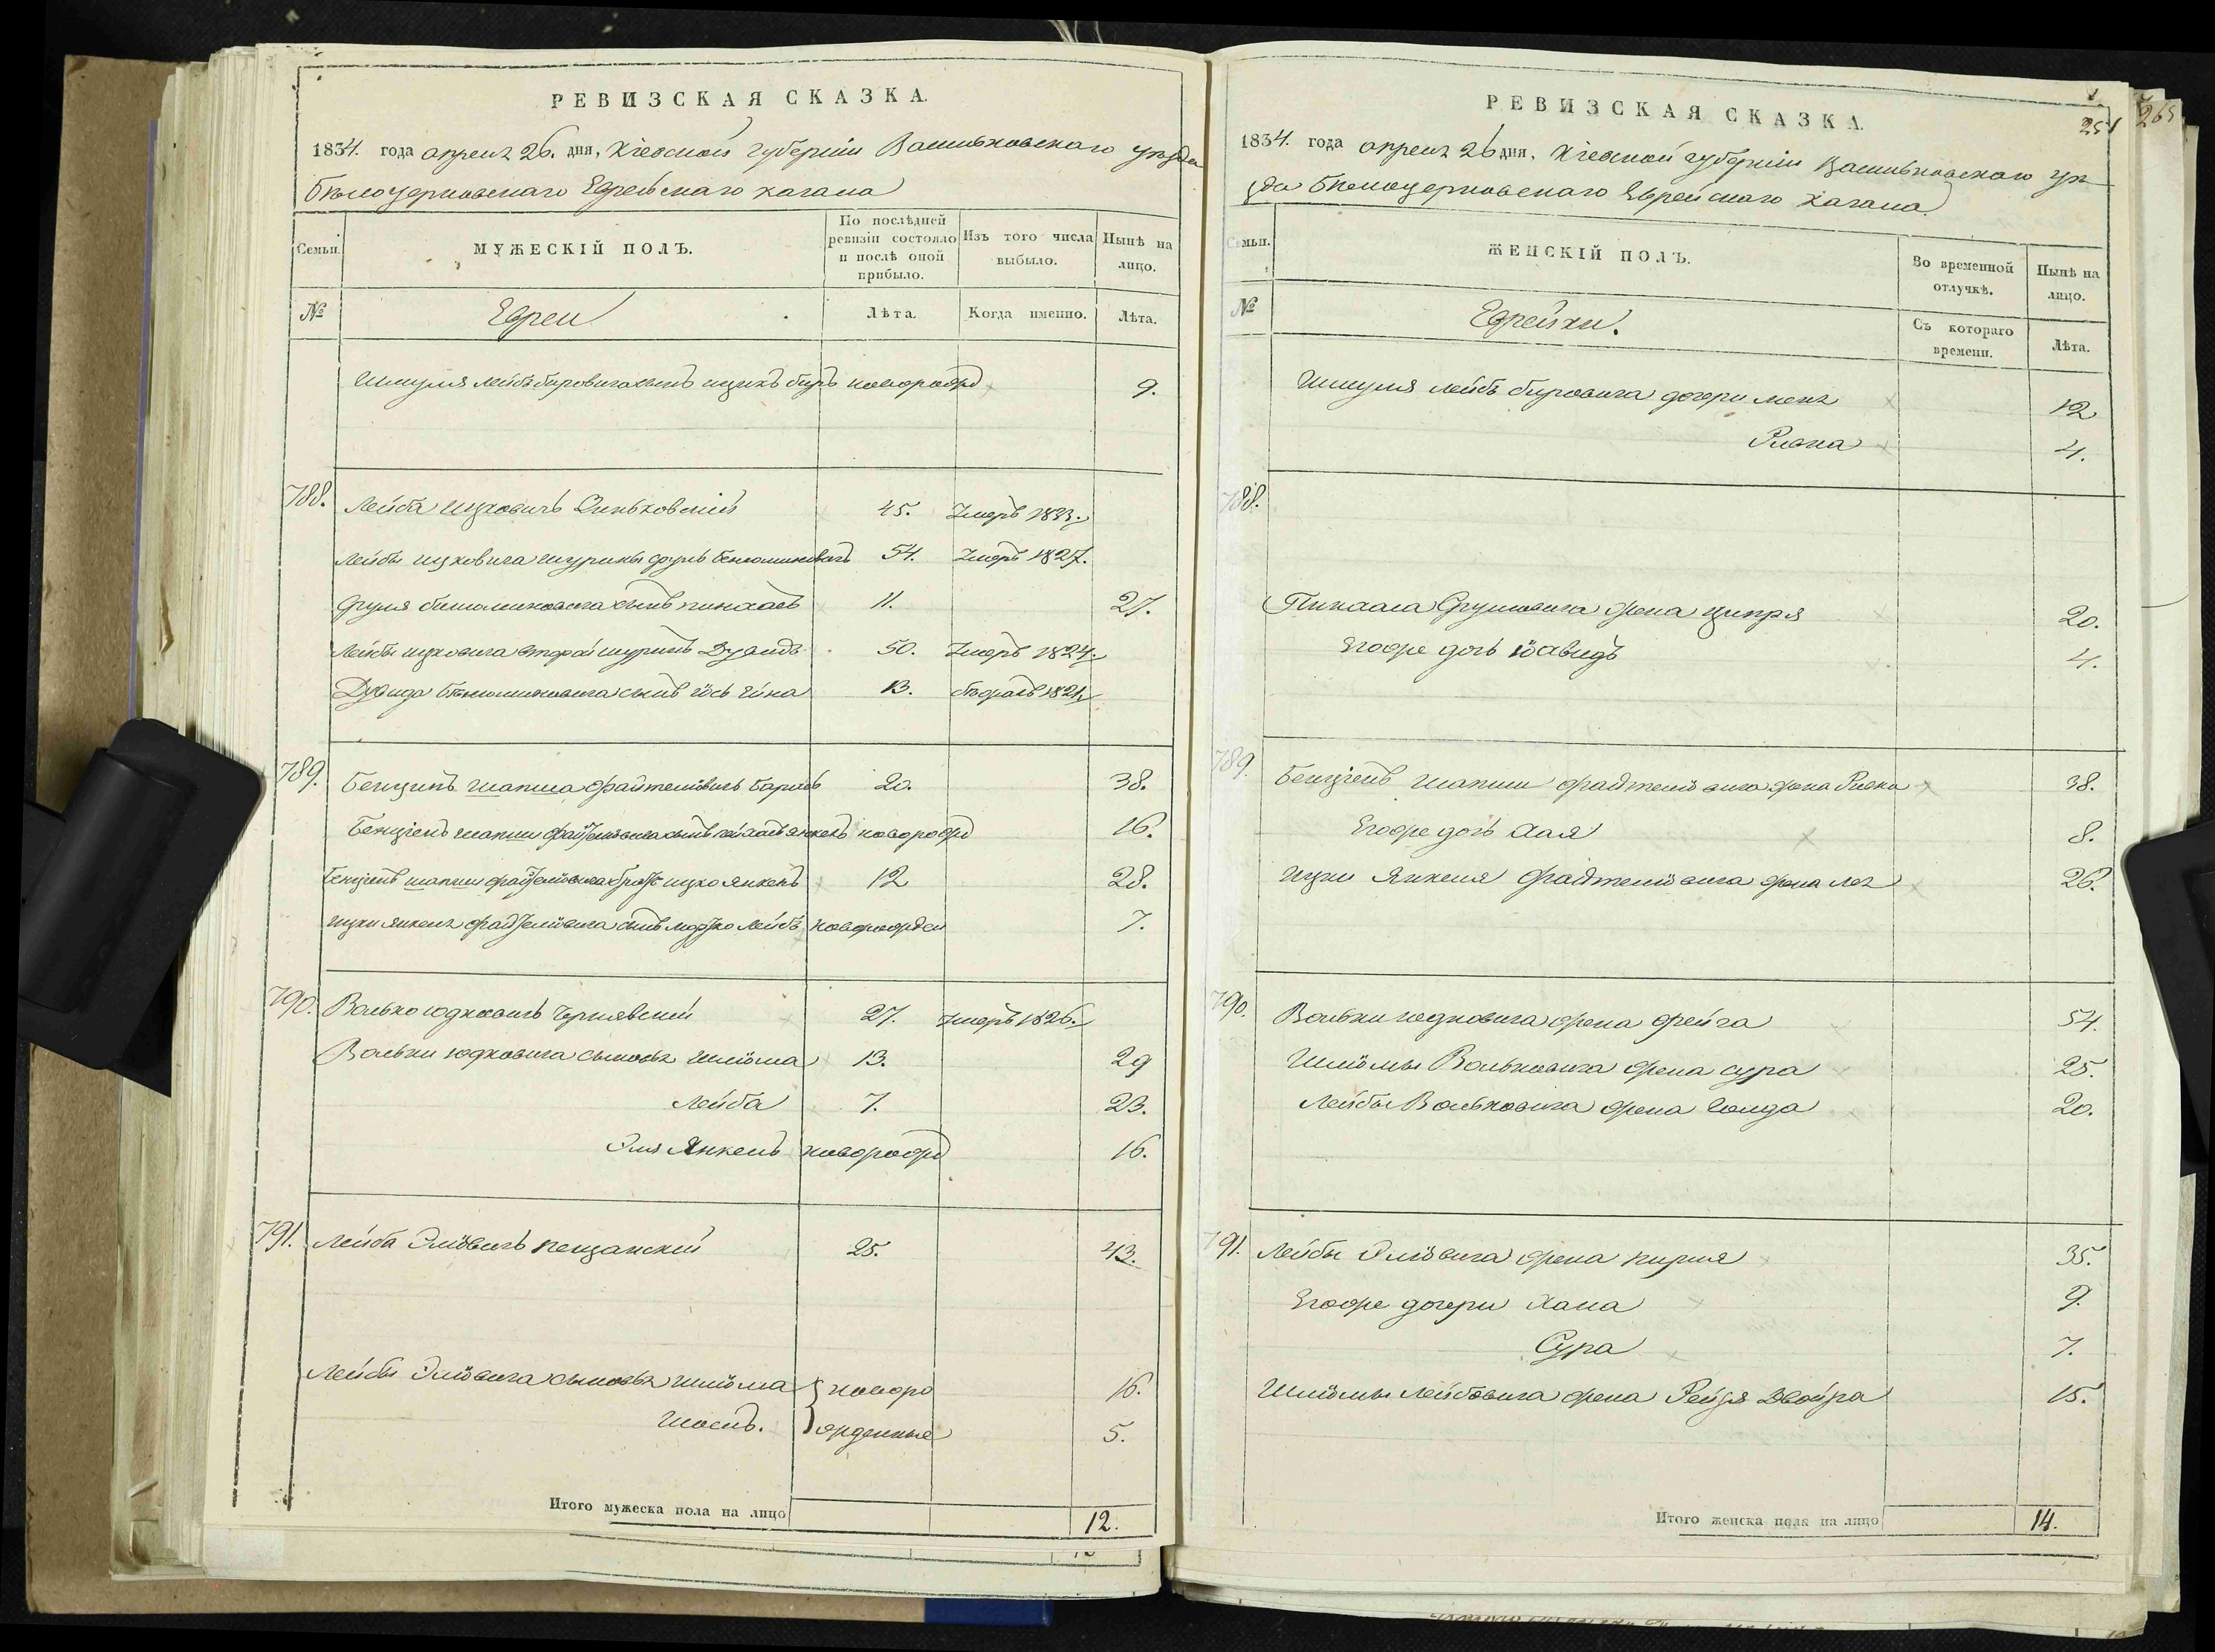 РЕВИЗСКАЯ СКАЗКА.
1834. года апреля 26. дня, Кіевской губерніи Васильковскаго уѣзда
Бѣлоцерковскаго Еврейскаго кагала
Семьи.
МУЖЕСКІЙ ПОЛЪ.
По послѣдней ревизіи состояло и послѣ оной прибыло.
Изъ того числа выбыло.
Нынѣ на лицо.
№
Евреи
Лѣта.
Когда именно.
Лѣта.
Шмуля Лейбъ Беровича сынъ Ицикъ Беръ новорожд 9.
788. Лейба Ицковичъ 45. Умеръ 1833.
Лейбы Ицковича шуринъ Сруль Бениоминовичъ 54. Умеръ 1827.
Сруля Бениоминовича сынъ Пинхасъ 11. 27.
Лейбы Ицковича второй шуринъ Дувидъ 50. Умеръ 1824.
Дувида Бениоминовича сынъ Іось 13. бѣжалъ 1821
789. Бенціонъ Шапша Файтелiовичъ 20. 38.
Бенціонъ Шапши Файтелiовича сынъ Янкель новорожд 16.
Бенціонъ Шапши Файтелiовича братъ Ицко Янкель 12 28.
Ицки Янкеля Файтелiовича сынъ Мордко Лейбъ новорожден 7.
790. Волько Юдковичъ Чернявскій 27. Умеръ 1826.
Вольки Юдковича сыновья Шліома 13. 29
Лейба 7. 23.
Эля Янкель новорожд 16.
791. Лейба Эліовичъ Пещанскій 25. 43.
Лейбы Эліовича сыновья Шліома новоро 16.
жденные 5.
Итого мужеска пола на лицо 12.
РЕВИЗСКАЯ СКАЗКА.
251
265
1834. года апреля 26 дня, Кіевской губерніи Васильковскаго уѣ
зда Бѣлоцерковскаго Еврейскаго Кагала
Семьи.
ЖЕНСКІЙ ПОЛЪ.
Во временной отлучкѣ.
Нынѣ на лицо.
№
Еврейки.
Съ котораго времени.
Лѣта.
Шмуля Лейбъ Беровича дочери 12
Ривка 4.
788.
Пинхаса Срулевича жена Ципря 20.
Егоже дочь 4.
789. Бенціонъ Шапши Файтелiовича жена Ривка 38.
Егоже дочь Хая 8.
Ицки Янкеля Файтелiовича жена Лея 26.
790. Вольки Юдковича жена Фейга 54.
Шліомы Вольковича жена Сура 25.
Лейбы Вольковича жена Голда 20.
791. Лейбы Эліовича жена 35.
Егоже дочери Хана 9.
Сура 7.
Шліомы Лейбовича жена Рейзя Двойра 15.
Итого женска пола на лицо 14.